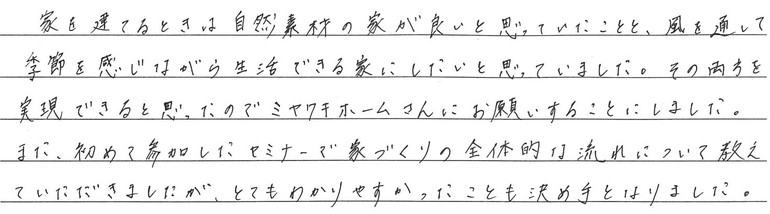 家を建てるときは自然素材の家が良いと思っていたことと、風を通して
季節を感じながら生活できる家にしたいと思っていました。その両方を
実現できると思ったのでミヤワキホームさんにお願いすることにしました。
また、初めて参加したセミナーで家づくりの全体的な流れについて教え
ていただきましたが、とてもわかりやすかったことも決め手となりました。